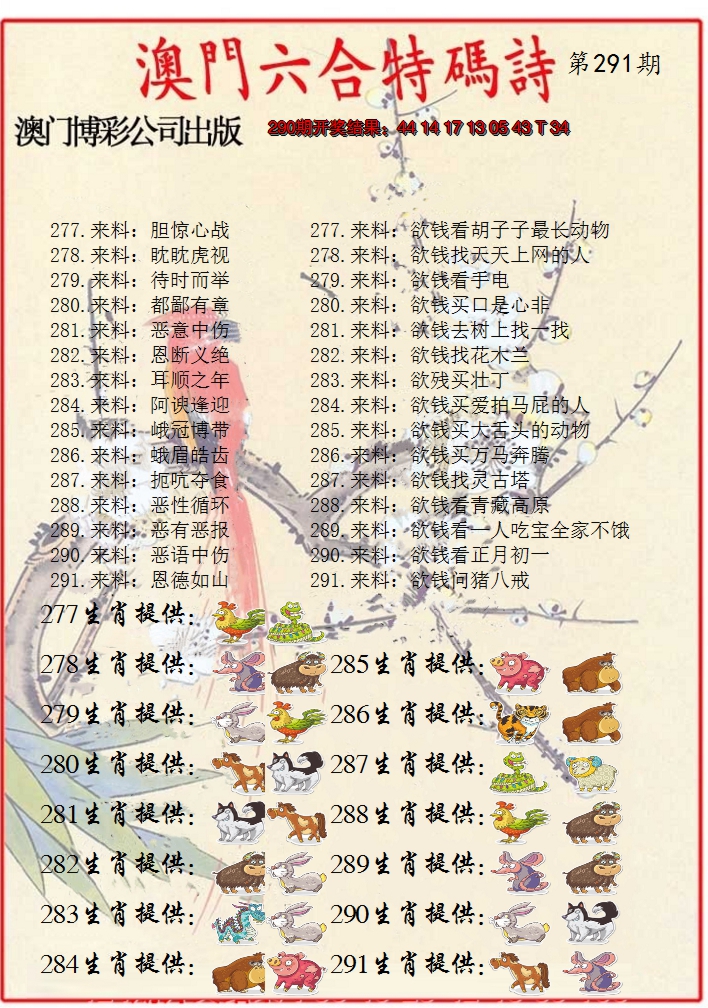 澳門六合特碼詩 第291期
澳门博彩公司出版 290期开奖结果：44 14 17 13 05 43 T 34
277.来料：胆惊心战 277.来料：欲钱看胡子子最长动物
278.来料：眈眈虎视 278.来料：欲钱找天天上网的人
279.来料：待时而举 279.来料：欲钱看手电
280.来料：都鄙有章 280.来料：欲钱买口是心非
281.来料：恶意中伤 281.来料：欲钱去树上找一找
282.来料：恩断义绝 282.来料：欲钱找花木兰
283.来料：耳顺之年 283.来料：欲残买壮丁
284.来料：阿谀逢迎 284.来料：欲钱买爱拍马屁的人
285.来料：峨冠博带 285.来料：欲钱买大舌头的动物
286.来料：蛾眉皓齿 286.来料：欲钱买万马奔腾
287.来料：扼吭夺食 287.来料：欲钱找灵古塔
288.来料：恶性循环 288.来料：欲钱看青藏高原
289.来料：恶有恶报 289.来料：欲钱看一人吃宝全家不饿
290.来料：恶语中伤 290.来料：欲钱看正月初一
291.来料：恩德如山 291.来料：欲钱问猪八戒
277生肖提供：
278生肖提供： 285生肖提供：
279生肖提供： 286生肖提供：
280生肖提供： 287生肖提供：
281生肖提供： 288生肖提供：
282生肖提供： 289生肖提供：
283生肖提供： 290生肖提供：
284生肖提供： 291生肖提供：